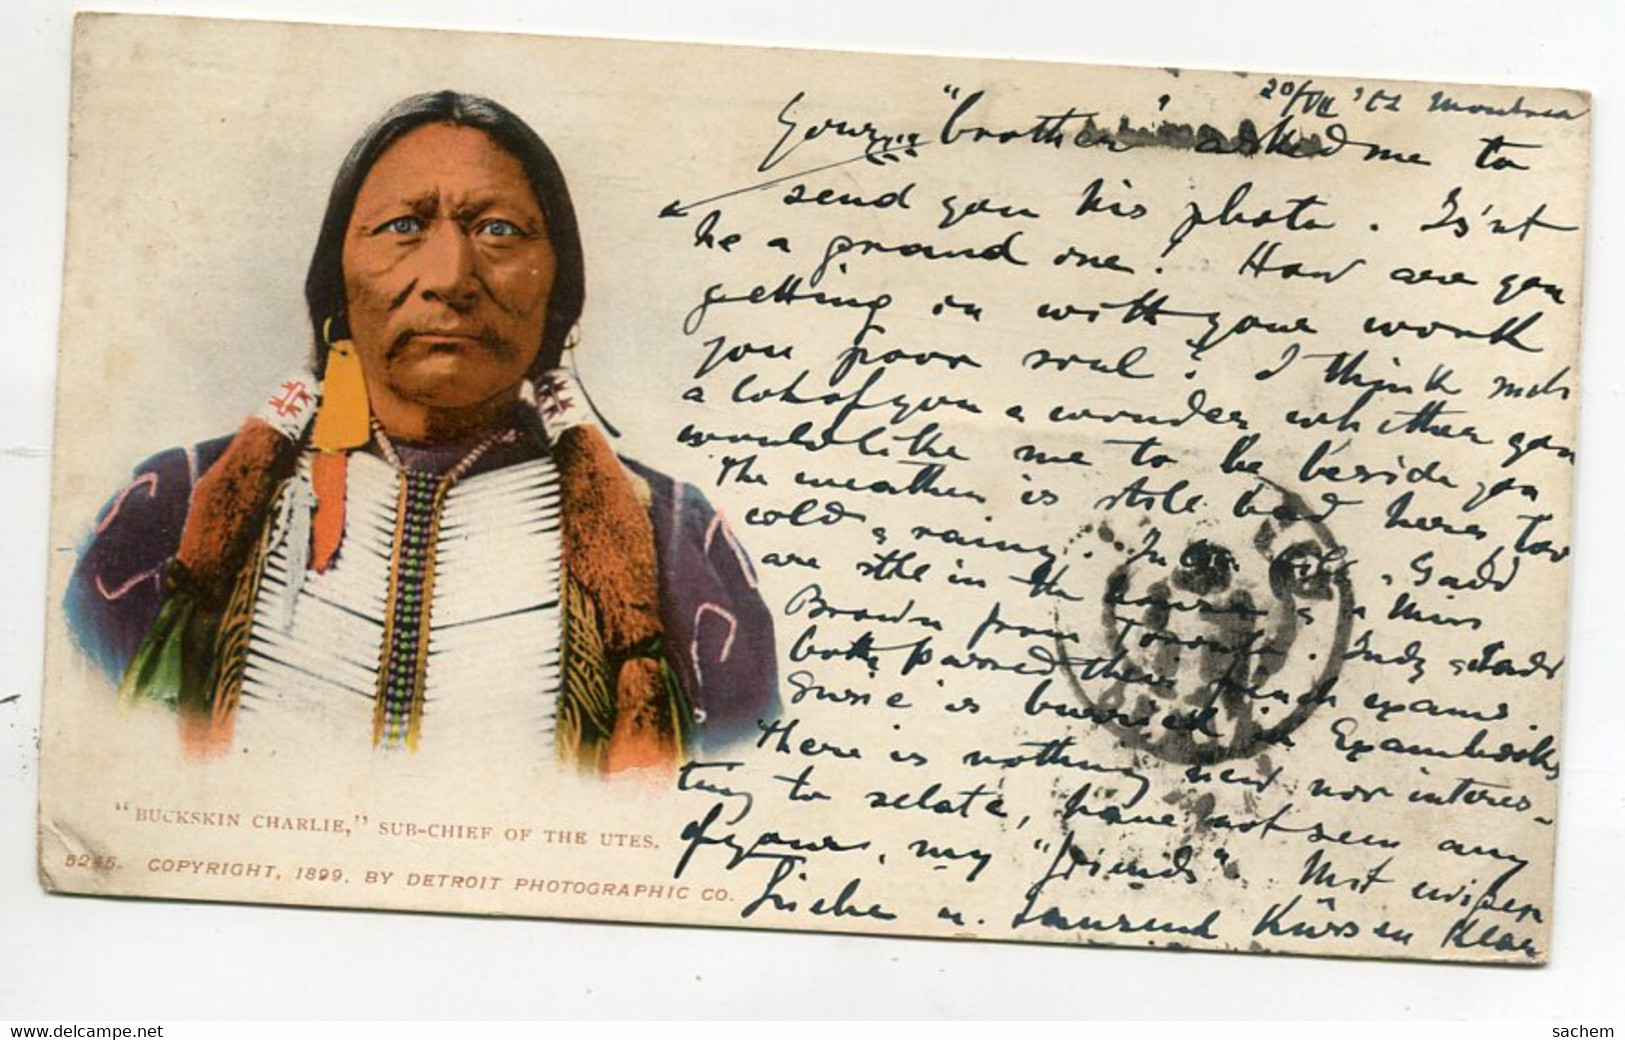 20/VII '02 Montrea
Your "brother" asked me to
send you his photo. Is'nt
he a grand one! How are you
getting on with your work
you poor soul? I think such
a lot of you & wonder whether you
would like me to be beside you
The weather is still bad here, too
cold & rainy.
are in the house & a Miss
Brown from Toronto. Judy &
both passed their french exams.
Susie is buried in Exambooks
There is nothing new nor interes-
ting to relate, have not seen any
of yours, my "friends". Mit
Liebe u. tausend Küssen Klara
"BUCKSKIN CHARLIE," SUB-CHIEF OF THE UTES.
5245. COPYRIGHT, 1899, BY DETROIT PHOTOGRAPHIC CO.
www.delcampe.net
sachem